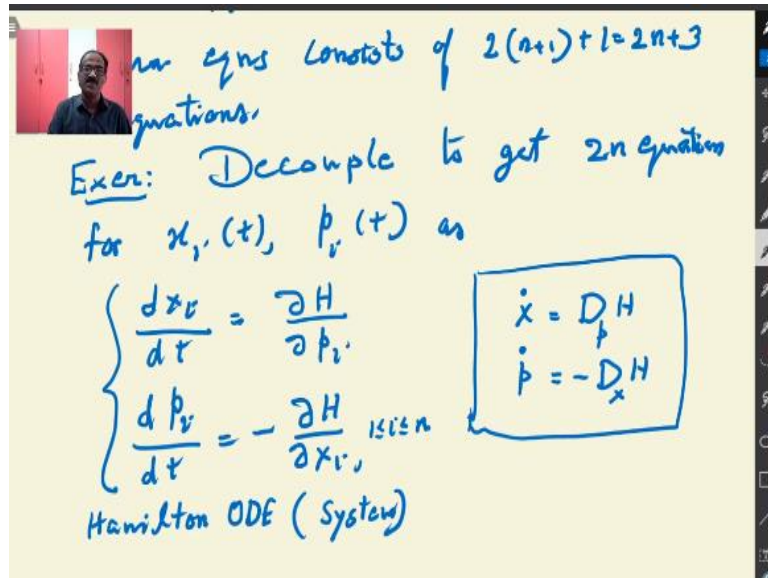 eqns consists of 2(n+1)+1=2n+3
equations.
Exer: Decouple to get 2n equations
for xᵢ(t), pᵢ(t) as
dxᵢ/dt = ∂H/∂pᵢ
dpᵢ/dt = - ∂H/∂xᵢ, 1≤i≤n
ẋ = DₚH
ṗ = -DₓH
Hamilton ODE (System)